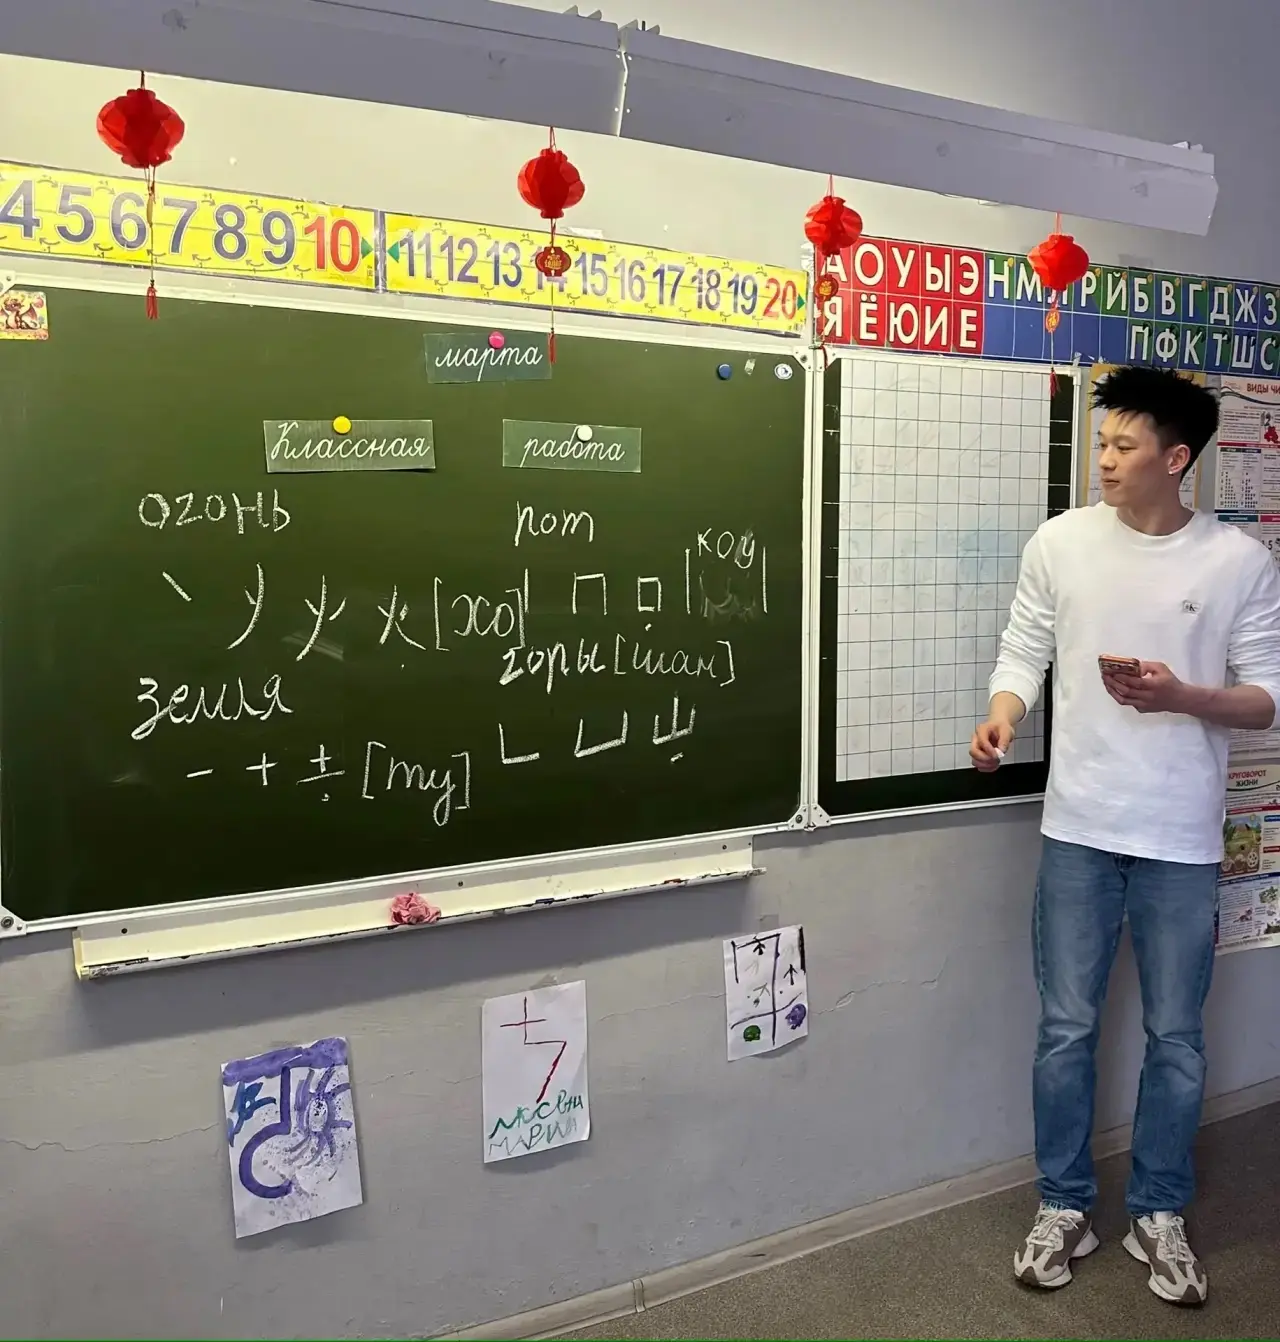 4 5 6 7 8 9 10 11 12 13 14 15 16 17 18 19 20
А О У Ы Э Н М Л Р Й Б В Г Д Ж З
Я Ё Ю И Е П Ф К Т Ш С
марта
Классная работа
огонь
丶 丿 火 [хо]
рот
冂 口 коу
земля
一 十 土 [ту]
горы [шан]
凵 山
ВИДЫ
КРУГОВОРОТ
ЖИЗНИ
МАРИИ